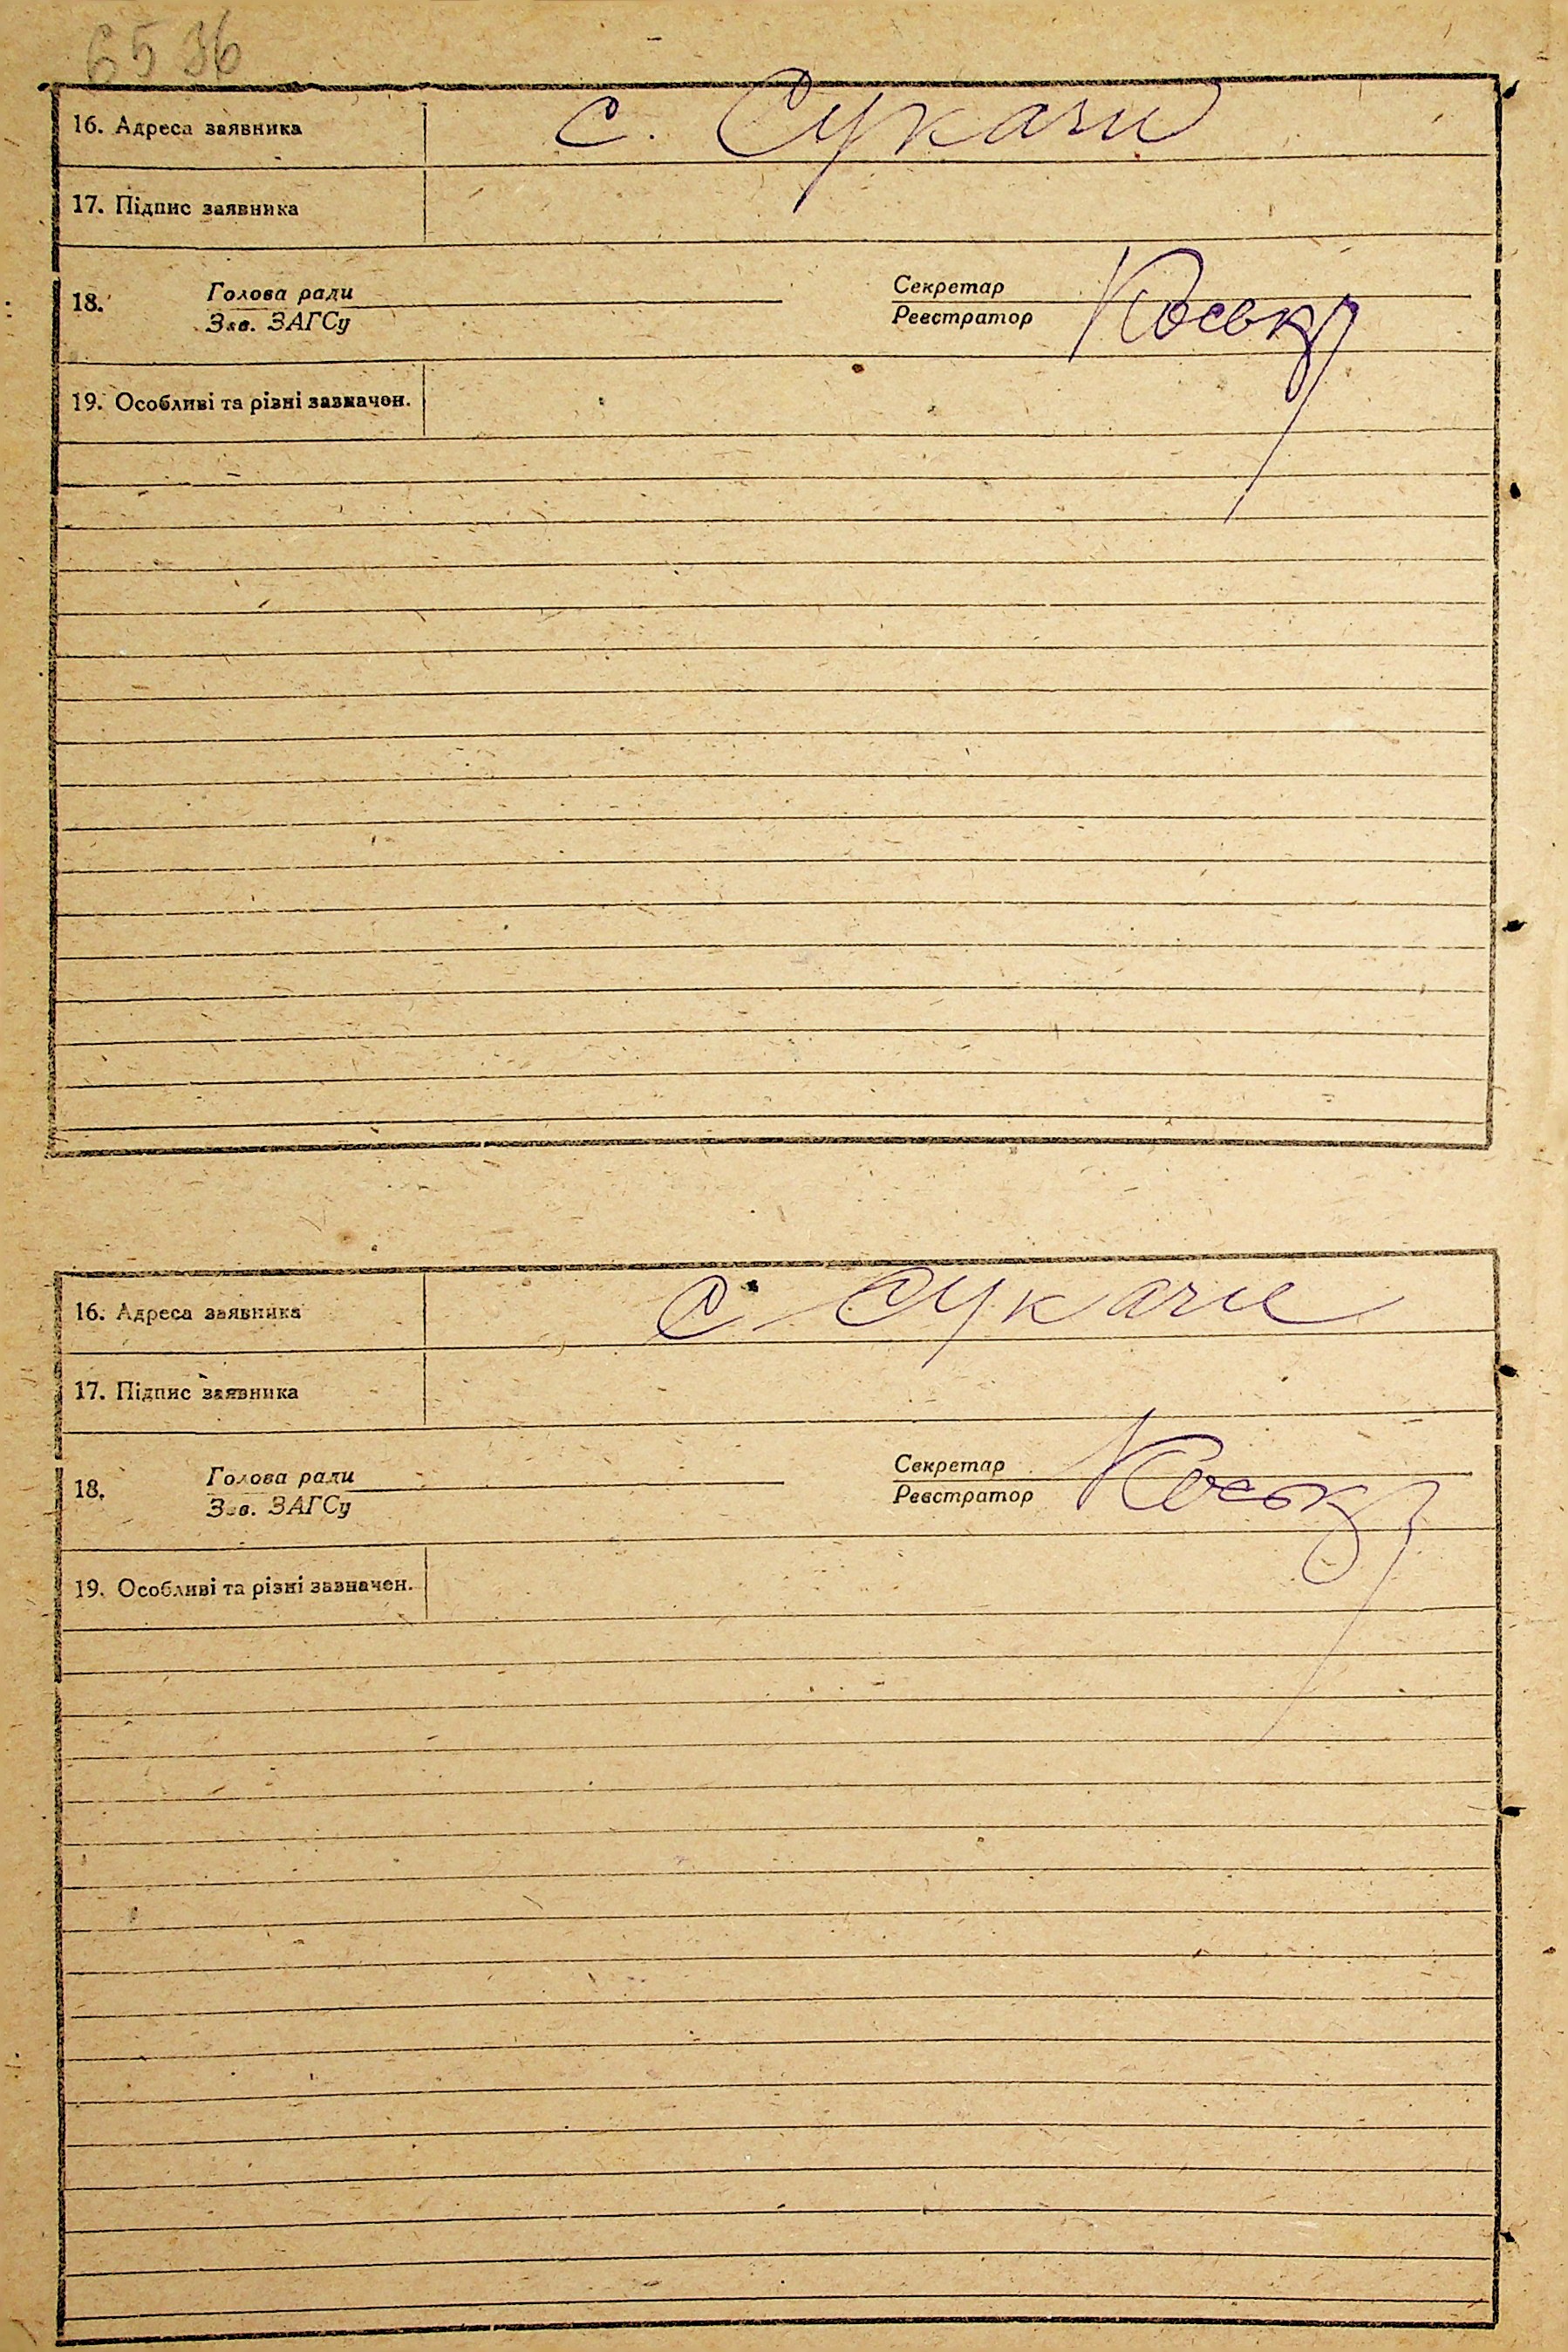 16. Адреса заявника с. Сукачи
17. Підпис заявника
18. Голова ради Секретар
Зав. ЗАГСу Реєстратор
19. Особливі та різні зазначен.
16. Адреса заявника с. Сукачи
17. Підпис заявника
18. Голова ради Секретар
Зав. ЗАГСу Реєстратор
19. Особливі та різні зазначен.